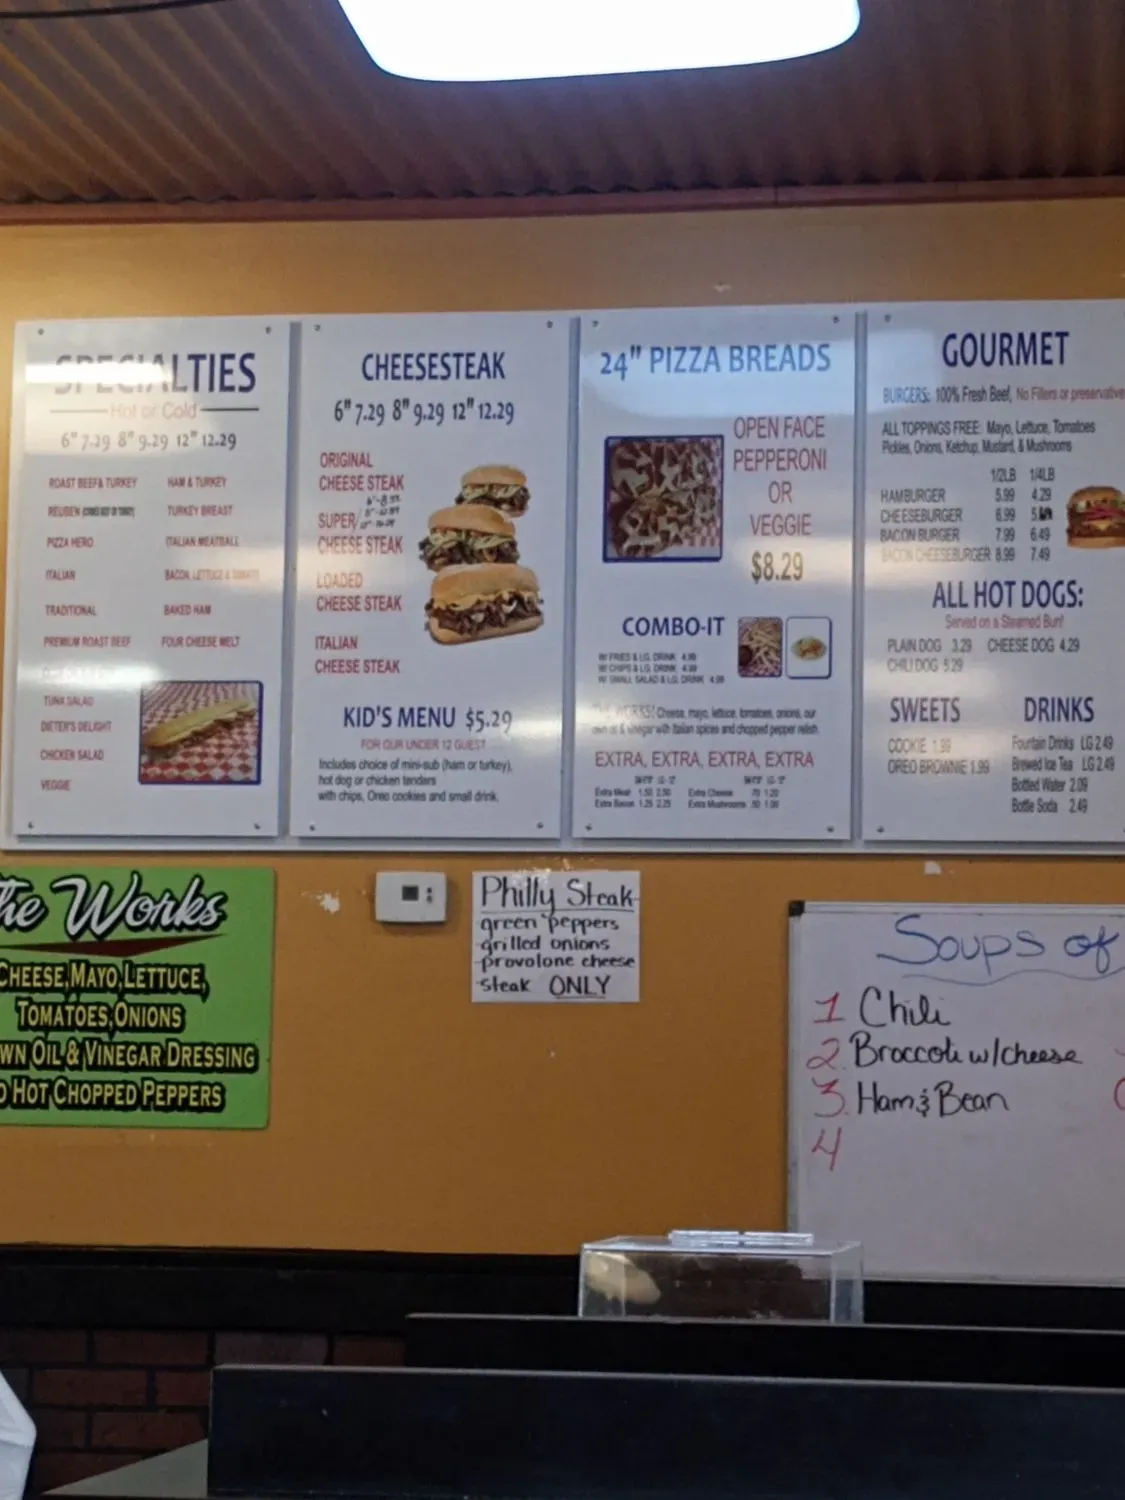 SPECIALTIES
Hot or Cold
6" 7.29 8" 9.29 12" 12.29
ROAST BEEF & TURKEY HAM & TURKEY
REUBEN TURKEY BREAST
PIZZA HERO ITALIAN MEATBALL
ITALIAN BACON, LETTUCE & TOMATO
TRADITIONAL BAKED HAM
PREMIUM ROAST BEEF FOUR CHEESE MELT
TUNA SALAD
DIETER'S DELIGHT
CHICKEN SALAD
VEGGIE
CHEESESTEAK
6" 7.29 8" 9.29 12" 12.29
ORIGINAL
CHEESE STEAK
SUPER
CHEESE STEAK
LOADED
CHEESE STEAK
ITALIAN
CHEESE STEAK
KID'S MENU $5.29
FOR OUR UNDER 12 GUEST
Includes choice of mini-sub (ham or turkey),
hot dog or chicken tenders
with chips, Oreo cookies and small drink.
24" PIZZA BREADS
OPEN FACE
PEPPERONI
OR
VEGGIE
$8.29
COMBO-IT
W/ FRIES & LG. DRINK 4.99
W/ CHIPS & LG. DRINK
W/ SMALL SALAD & LG. DRINK 4.99
THE WORKS! Cheese, mayo, lettuce, tomatoes, onions, our
own oil & vinegar with Italian spices and chopped pepper relish.
EXTRA, EXTRA, EXTRA, EXTRA
Extra Meat 1.50 2.50 Extra Cheese .70 1.20
Extra Bacon 1.25 2.25 Extra Mushrooms .50 1.00
GOURMET
BURGERS: 100% Fresh Beef, No Fillers or preservative
ALL TOPPINGS FREE: Mayo, Lettuce, Tomatoes
Pickles, Onions, Ketchup, Mustard, & Mushrooms
1/2LB 1/4LB
HAMBURGER 5.99 4.29
CHEESEBURGER 6.99
BACON BURGER 7.99 6.49
BACON CHEESEBURGER 8.99 7.49
ALL HOT DOGS:
Served on a Steamed Bun!
PLAIN DOG 3.29 CHEESE DOG 4.29
CHILI DOG 5.29
SWEETS
COOKIE 1.99
OREO BROWNIE 1.99
DRINKS
Fountain Drinks LG 2.49
Brewed Ice Tea LG 2.49
Bottled Water 2.09
Bottle Soda 2.49
he Works
CHEESE, MAYO, LETTUCE,
TOMATOES, ONIONS
WN OIL & VINEGAR DRESSING
D HOT CHOPPED PEPPERS
Philly Steak
green peppers
grilled onions
provolone cheese
steak ONLY
Soups of
1 Chili
2. Broccoli w/cheese
3. Ham & Bean
4